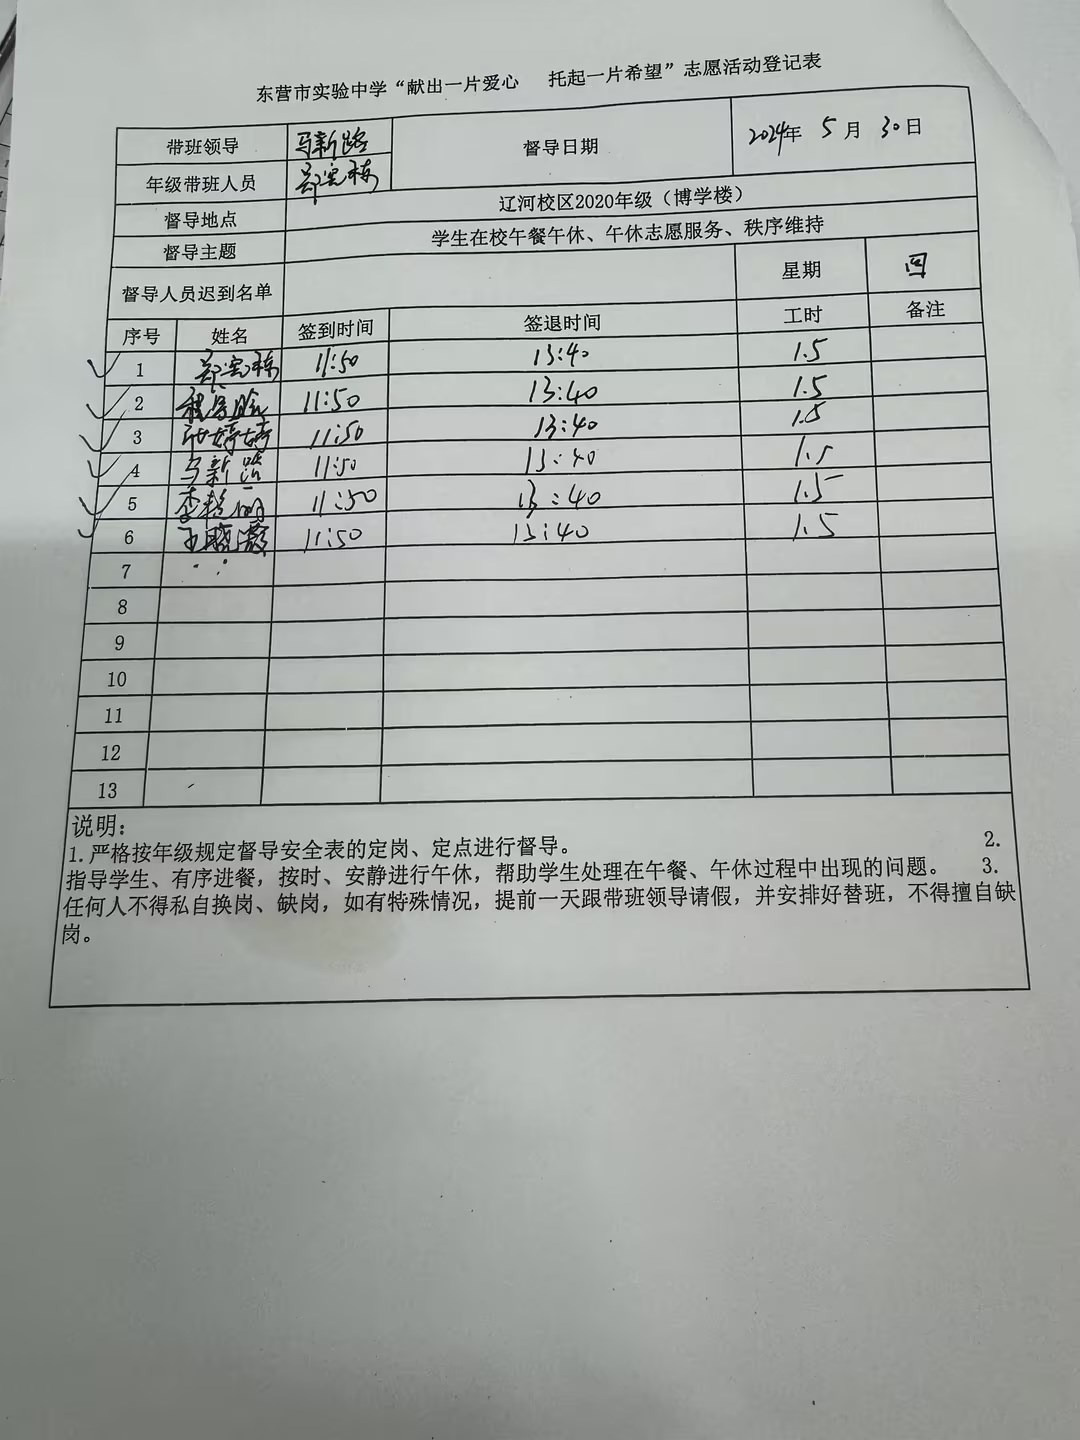 东营市实验中学“献出一片爱心 托起一片希望”志愿活动登记表
带班领导 马新路 督导日期 2024年 5月 30日
年级带班人员 郑宪栋
督导地点 辽河校区2020年级（博学楼）
督导主题 学生在校午餐午休、午休志愿服务、秩序维持
督导人员迟到名单 星期 四
序号 姓名 签到时间 签退时间 工时 备注
1 郑宪栋 11:50 13:40 1.5
2 11:50 13:40 1.5
3 婷婷 11:50 13:40 1.5
4 马新路 11:50 13:40 1.5
5 李艳丽 11:50 13:40 1.5
6 王晓灏 11:50 13:40 1.5
7
8
9
10
11
12
13
说明：
1.严格按年级规定督导安全表的定岗、定点进行督导。 2.
指导学生、有序进餐，按时、安静进行午休，帮助学生处理在午餐、午休过程中出现的问题。 3.
任何人不得私自换岗、缺岗，如有特殊情况，提前一天跟带班领导请假，并安排好替班，不得擅自缺
岗。